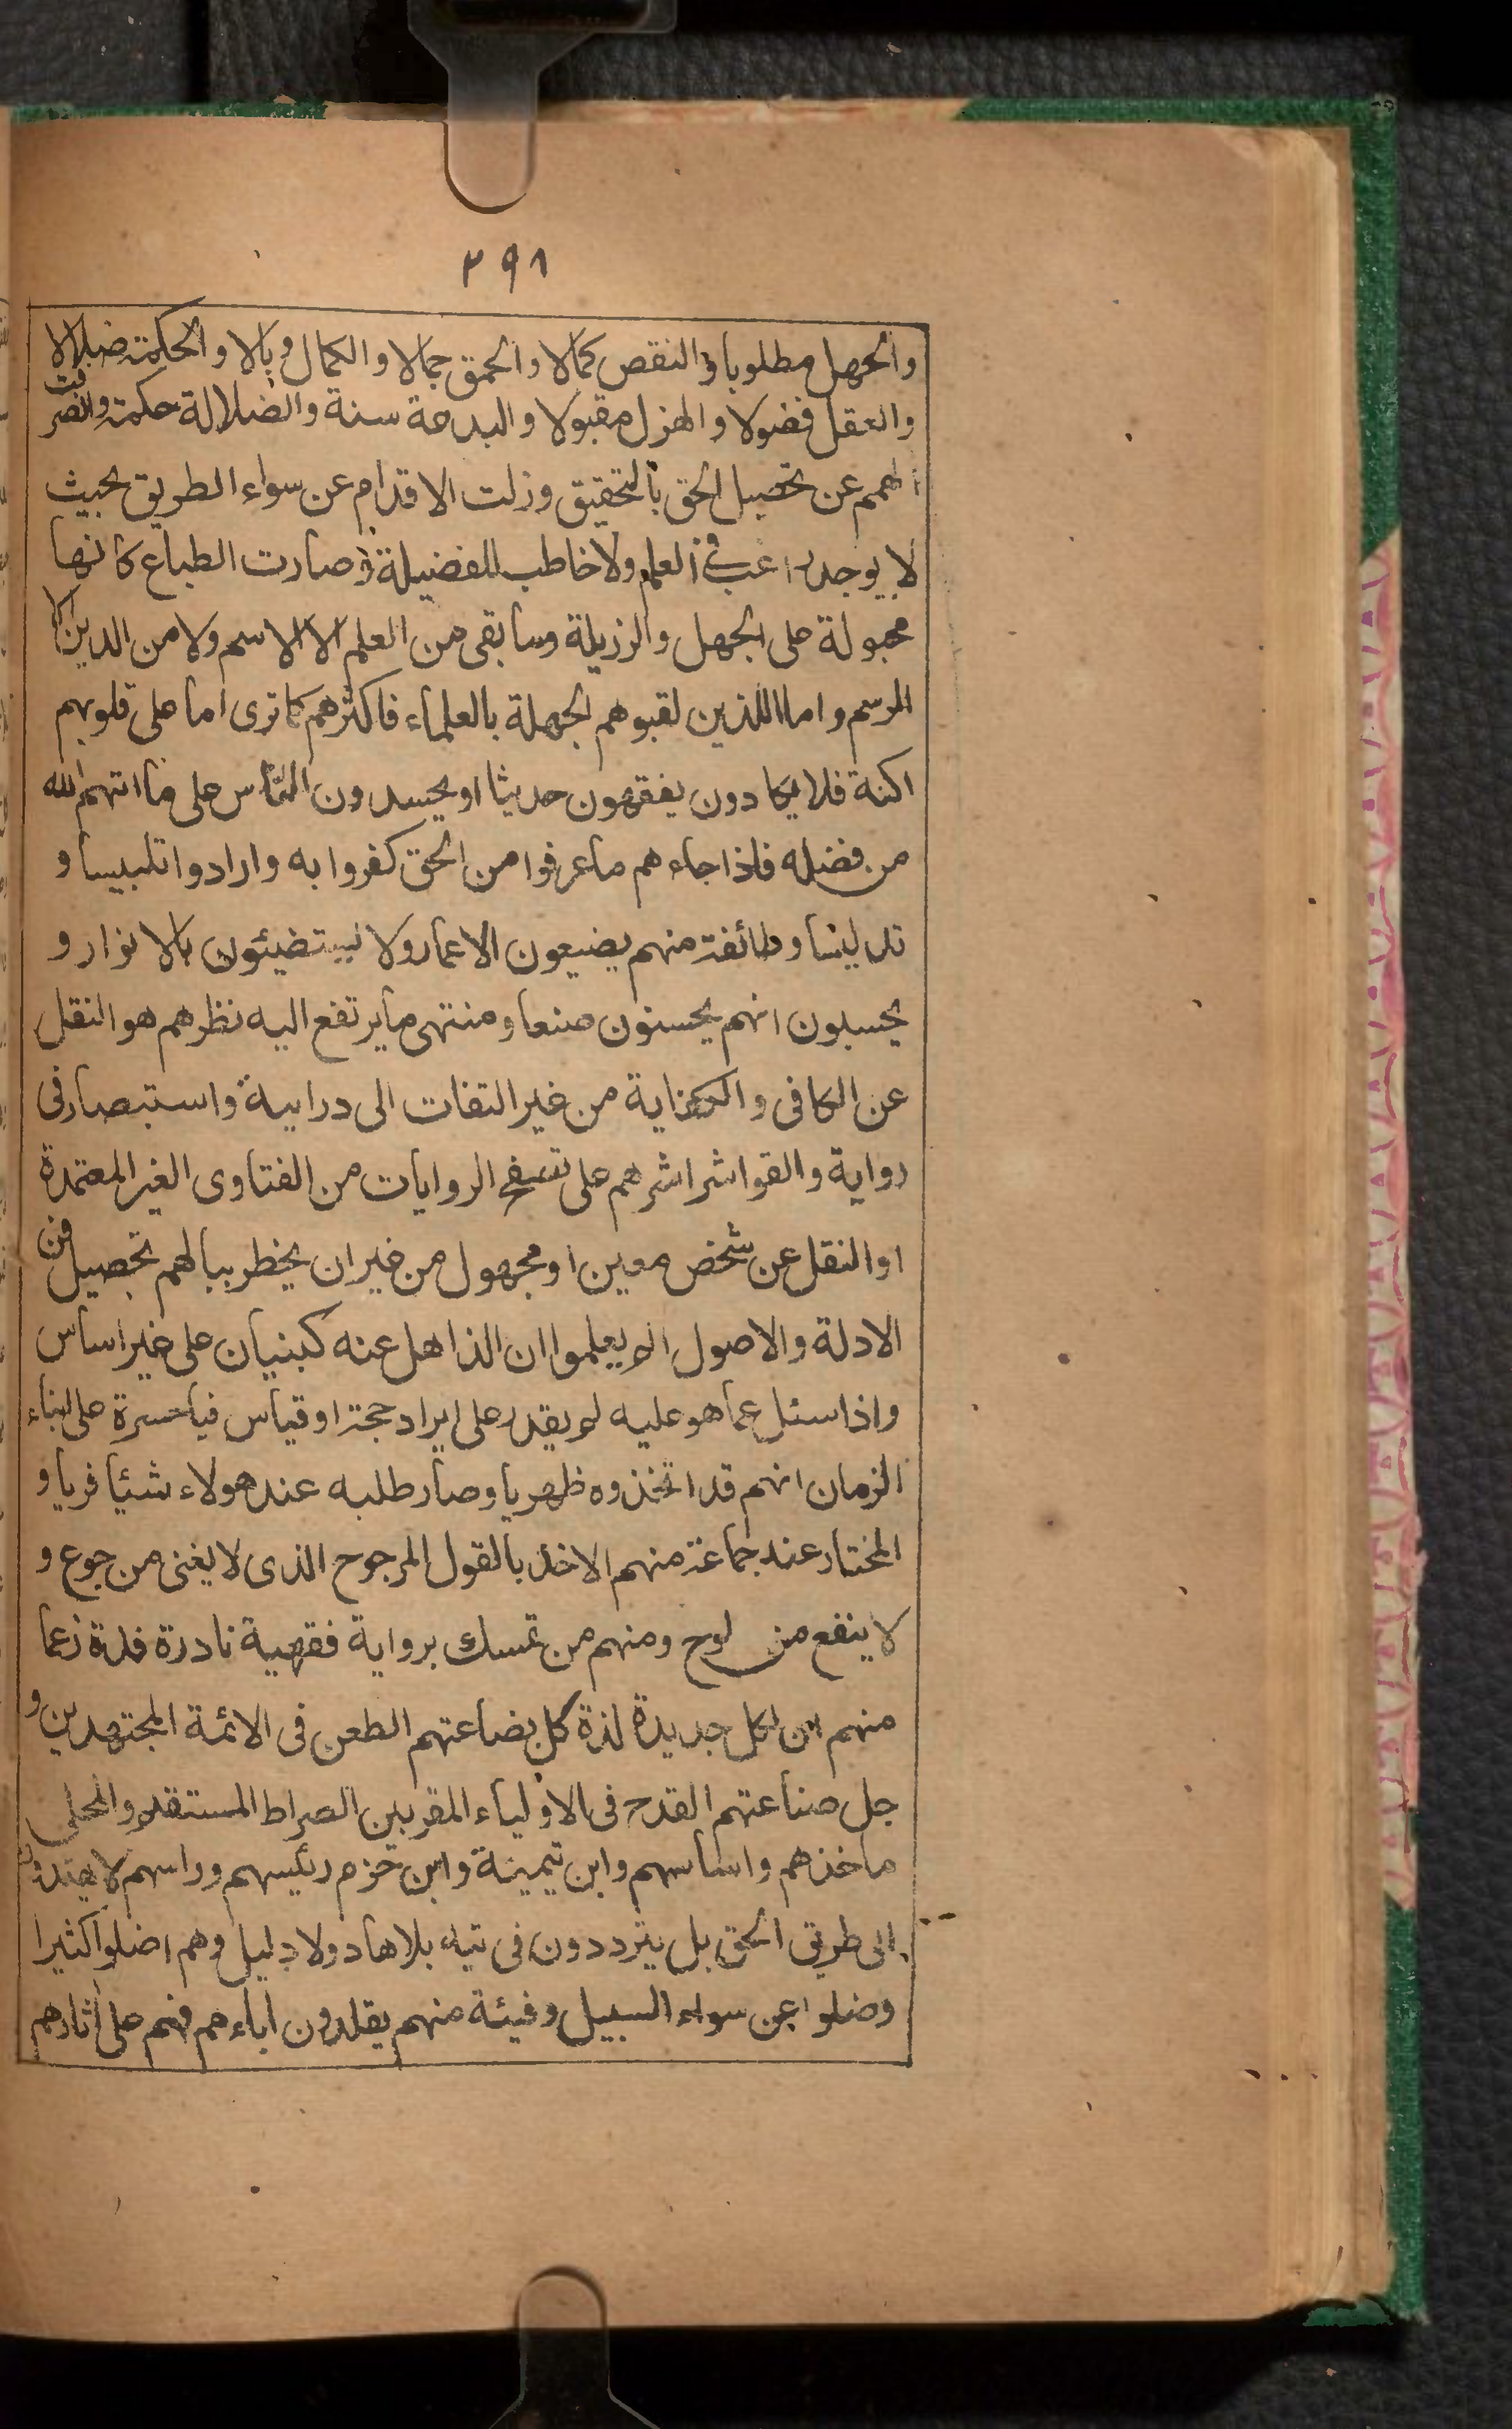 ٢٩٨
والجهل مطلوبا والنقص كمالا والحمق جمالا والكمال وبالا والحكمة ضلالا
والعقل فضولا والهزل مقبولا والبدعة سنة والضلالة حكمة وانصرفت
الهمم عن تحصيل الحق بالتحقيق وزلت الاقدام عن سواء الطريق بحيث
لا يوجد راغب فى العلم ولا خاطب للفضيلة وصارت الطباع كانها
مجبولة على الجهل والرزيلة وما بقى من العلم الا الاسم ولا من الدين الا
الرسم واما اللذين لقبوهم الجهلة بالعلماء فاكثرهم كما ترى اما على قلوبهم
اكنة فلا يكادون يفقهون حديثا او يحسدون الناس على ما اتهم الله
من فضله فاذا جاءهم ما عرفوا من الحق كفروا به وارادوا تلبيسا و
تدليسا وطائفة منهم يضيعون الاعمار ولا يستضيئون بالانوار و
يحسبون انهم يحسنون صنعا ومنتهى ما يرتفع اليه نظرهم هو النقل
عن الكافى والكفاية من غير التفات الى دراية واستبصار فى
رواية والقوا شراشرهم على تصفح الروايات من الفتاوى الغير المعتمدة
او النقل عن شخص معين او مجهول من غير ان يخطر ببالهم تحصيل فن
الادلة والاصول الم يعلموا ان الذاهل عنه كبنيان على غير اساس
واذا سئل عما هو عليه لم يقدر على ايراد حجة او قياس فياحسرة على ابناء
الزمان انهم قد اتخذوه ظهريا وصار طلبه عند هولاء شئيا فريا و
المختار عند جماعة منهم الاخذ بالقول المرجوح الذى لا يغنى من جوع و
لا ينفع من لوح ومنهم من تمسك برواية فقهية نادرة فذة زعما
منهم ان لكل جديدة لذة كل بضاعتهم الطعن فى الائمة المجتهدين و
جل صناعتهم القدح فى الاولياء المقربين الصراط المستقيم والمحلى
ماخذهم واساسهم وابن تيمية وابن حزم رئيسهم وراسهم لا يهتدون
الى طريق الحق بل يترددون فى تيه بلا هاد ولا دليل وهم اضلوا كثيرا
وضلوا عن سواء السبيل وفيئة منهم يقلدون اباءهم فهم على اثارهم